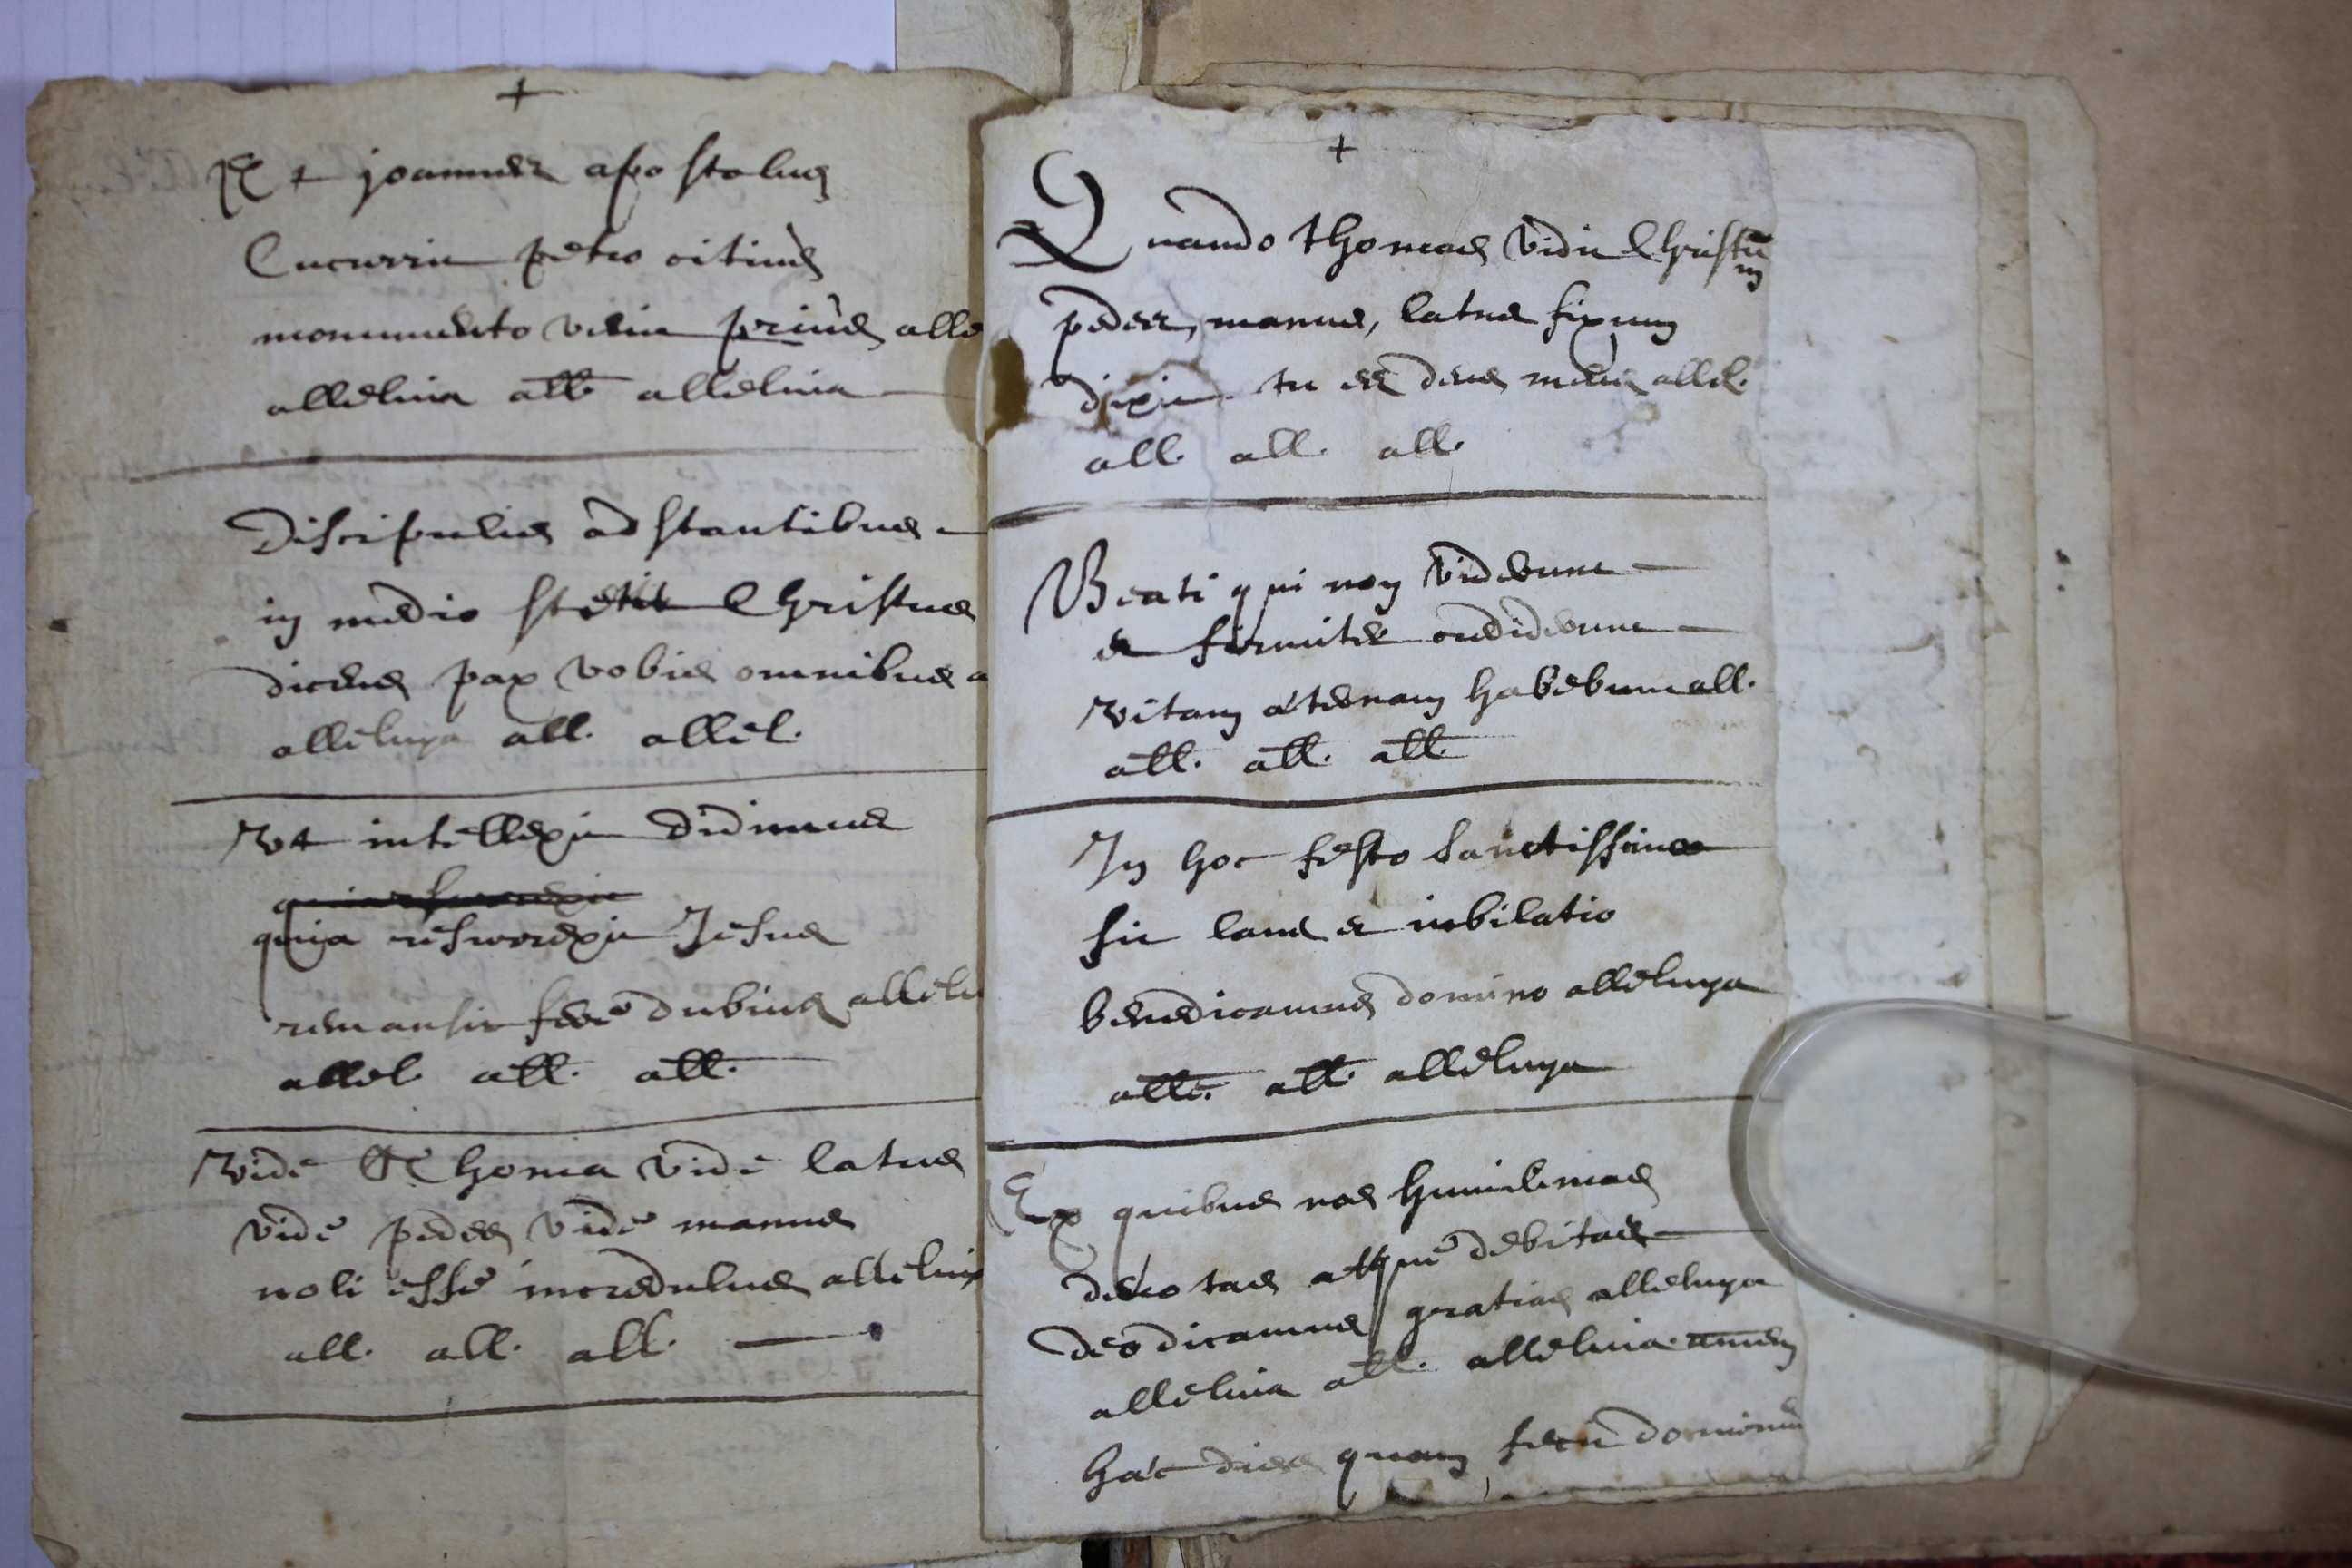 +
Et joannes apostolus
Cucurrit petro citius
monumento venit prius alle
alleluia all alleluia
Discipulis adstantibus
in medio stetit Christus
dicens pax vobis omnibus a
alleluya all. allel.
Vt intellexit Didimus
quia resurrexit
quia resurrexit Jesus
remansit fere dubius allelu
allel all. all.
Vide Thoma vide latus
vide pedes vide manus
noli esse incredulus alleluia
all. all. all.
+
Quando thomas vidit Christū
pedes, manus, latus suum
dixit tu es deus meus allel.
all. all. all.
Beati qui non viderunt
et firmiter crediderunt
vitam æternam habebunt all.
all. all. all.
In hoc festo sanctissimo
sit laus et iubilatio
benedicamus domino alleluya
alle. all. alleluya
Ex quibus nos humilimas
devotas atque debitas
deo dicamus gratias alleluya
alleluia all. alleluia amen
hæc dies quam fecit dominus